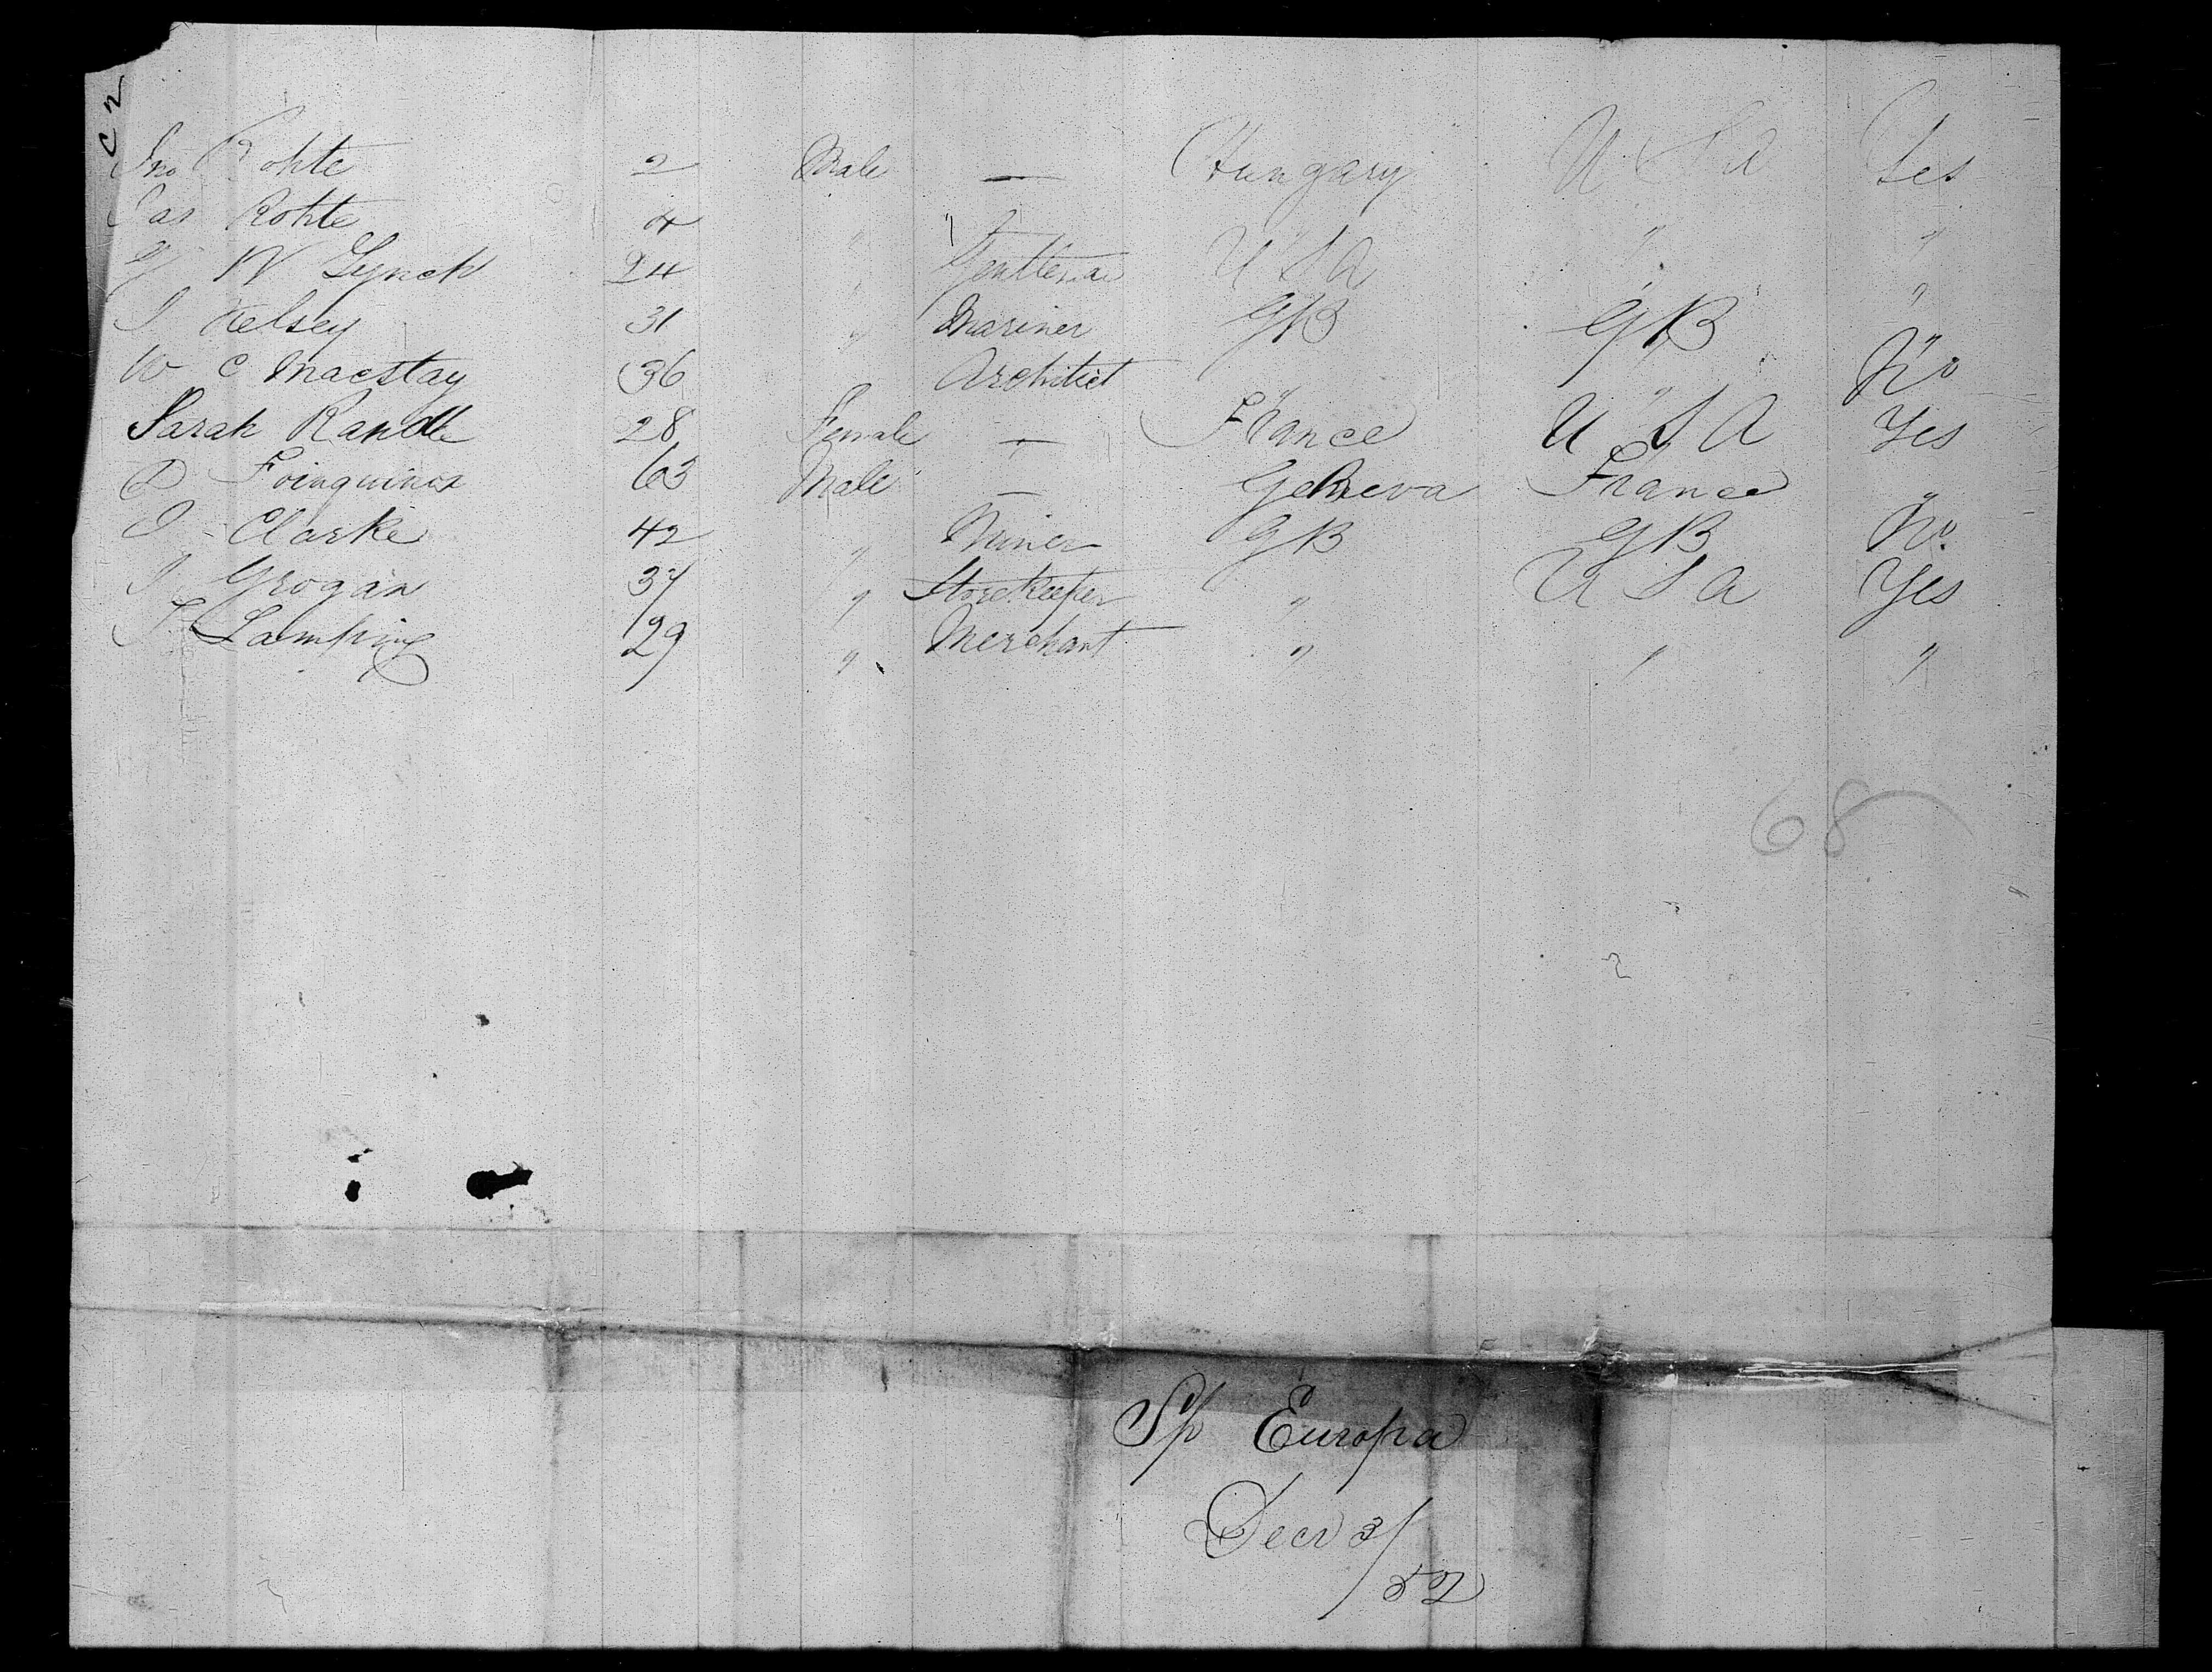 C 2
Jno Rohte 2 Male — Hungary U S A Yes
Jas Rohte 4 " " " " "
W Lynch 24 " Gentleman U S A " "
J Kelsey 31 " Mariner G B G B "
W C Macstay 36 " Architect " " No
Sarah Randle 28 Female — France U S A Yes
D Foinquinos 63 Male — Geneva France "
J Clarke 42 " Miner G B G B No
J Grogan 37 " Storekeeper " U S A Yes
T Lamping 29 " Merchant " " "
68
Sp Europa
Decr 3/
52